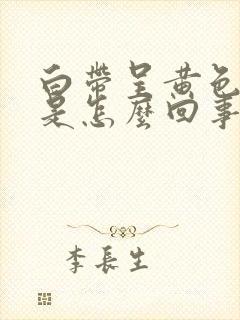 白帶呈黃色
是怎麼回事
李長生